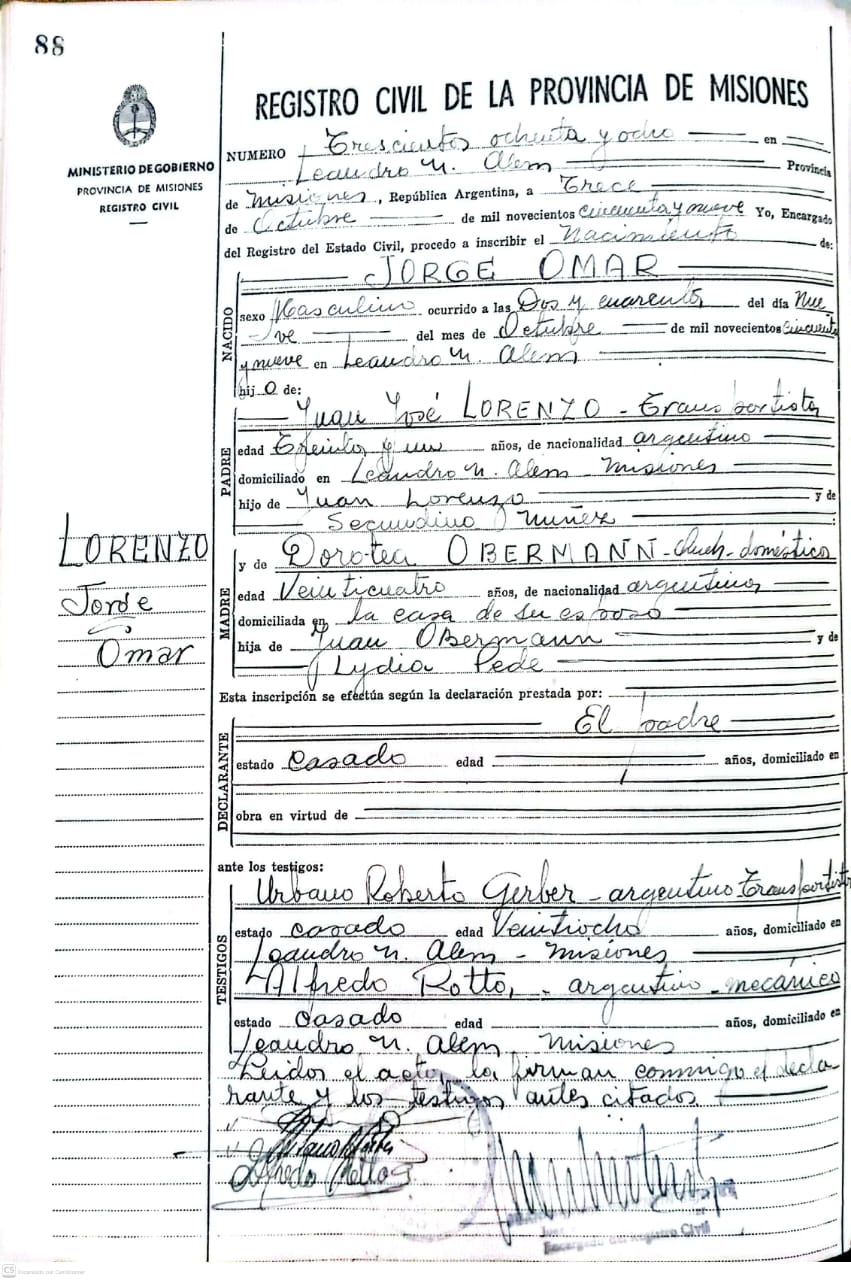 88
MINISTERIO DE GOBIERNO
PROVINCIA DE MISIONES
REGISTRO CIVIL
LORENZO
Jorge
Omar
REGISTRO CIVIL DE LA PROVINCIA DE MISIONES
NUMERO Trescientos ochenta y ocho en
Leandro N. Alem Provincia
de Misiones, República Argentina, a Trece
de Octubre de mil novecientos cincuenta y nueve Yo, Encargado
del Registro del Estado Civil, procedo a inscribir el Nacimiento de:
NACIDO
JORGE OMAR
sexo Masculino ocurrido a las Dos y cuarenta del día Nue
ve del mes de Octubre de mil novecientos cincuenta
y nueve en Leandro N. Alem
hij o de:
PADRE
Juan José LORENZO - Transportista
edad Treinta y un años, de nacionalidad argentino
domiciliado en Leandro N. Alem Misiones
hijo de Juan Lorenzo y de
Secundina Nuñez :
MADRE
y de Dorotea OBERMANN - Queh. domésticos
edad Veinticuatro años, de nacionalidad argentina
domiciliada en la casa de su esposo
hija de Juan Obermann y de
Lydia Pede
Esta inscripción se efectúa según la declaración prestada por:
DECLARANTE
El padre
estado casado edad años, domiciliado en
obra en virtud de
ante los testigos:
TESTIGOS
Urbano Roberto Gerber - argentino Transportista
estado casado edad Veintiocho años, domiciliado en
Leandro N. Alem - Misiones
Alfredo Rotto, - argentino - mecánico
estado casado edad años, domiciliado en
Leandro N. Alem Misiones
Leidos el acto, la firman conmigo el decla
rante y los testigos antes citados.
Encargado del Registro Civil
CS Escaneado con CamScanner